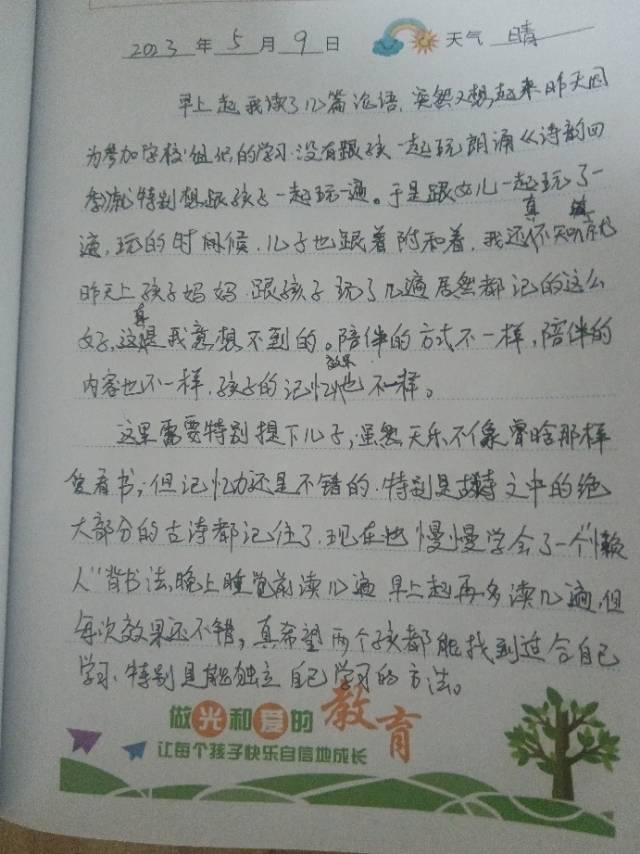 2023 年 5 月 9 日 天气 晴
早上起我读了几篇论语,突然又想起来昨天因
为参加学校组织的学习没有跟孩一起玩朗诵《诗韵四
季流》特别想跟孩子一起玩一遍。于是跟女儿一起玩了一
遍,玩的时间候,儿子也跟着附和着,我还真不知
昨天上孩子妈妈跟孩子玩了几遍居然都记的这么
好,这真是我意想不到的。陪伴的方式不一样,陪伴的
内容也不一样,孩子的记忆效果也不一样。
这里需要特别提下儿子,虽然天乐不像曾晗那样
爱看书,但记忆力还是不错的,特别是文中的绝
大部分的古诗都记住了,现在他慢慢学会了一个"懒
人"背书法,晚上睡觉前读几遍早上起再多读几遍,但
每次效果还不错,真希望两个孩都能找到适合自己
学习、特别是能独立自己学习的方法。
做光和爱的教育
让每个孩子快乐自信地成长